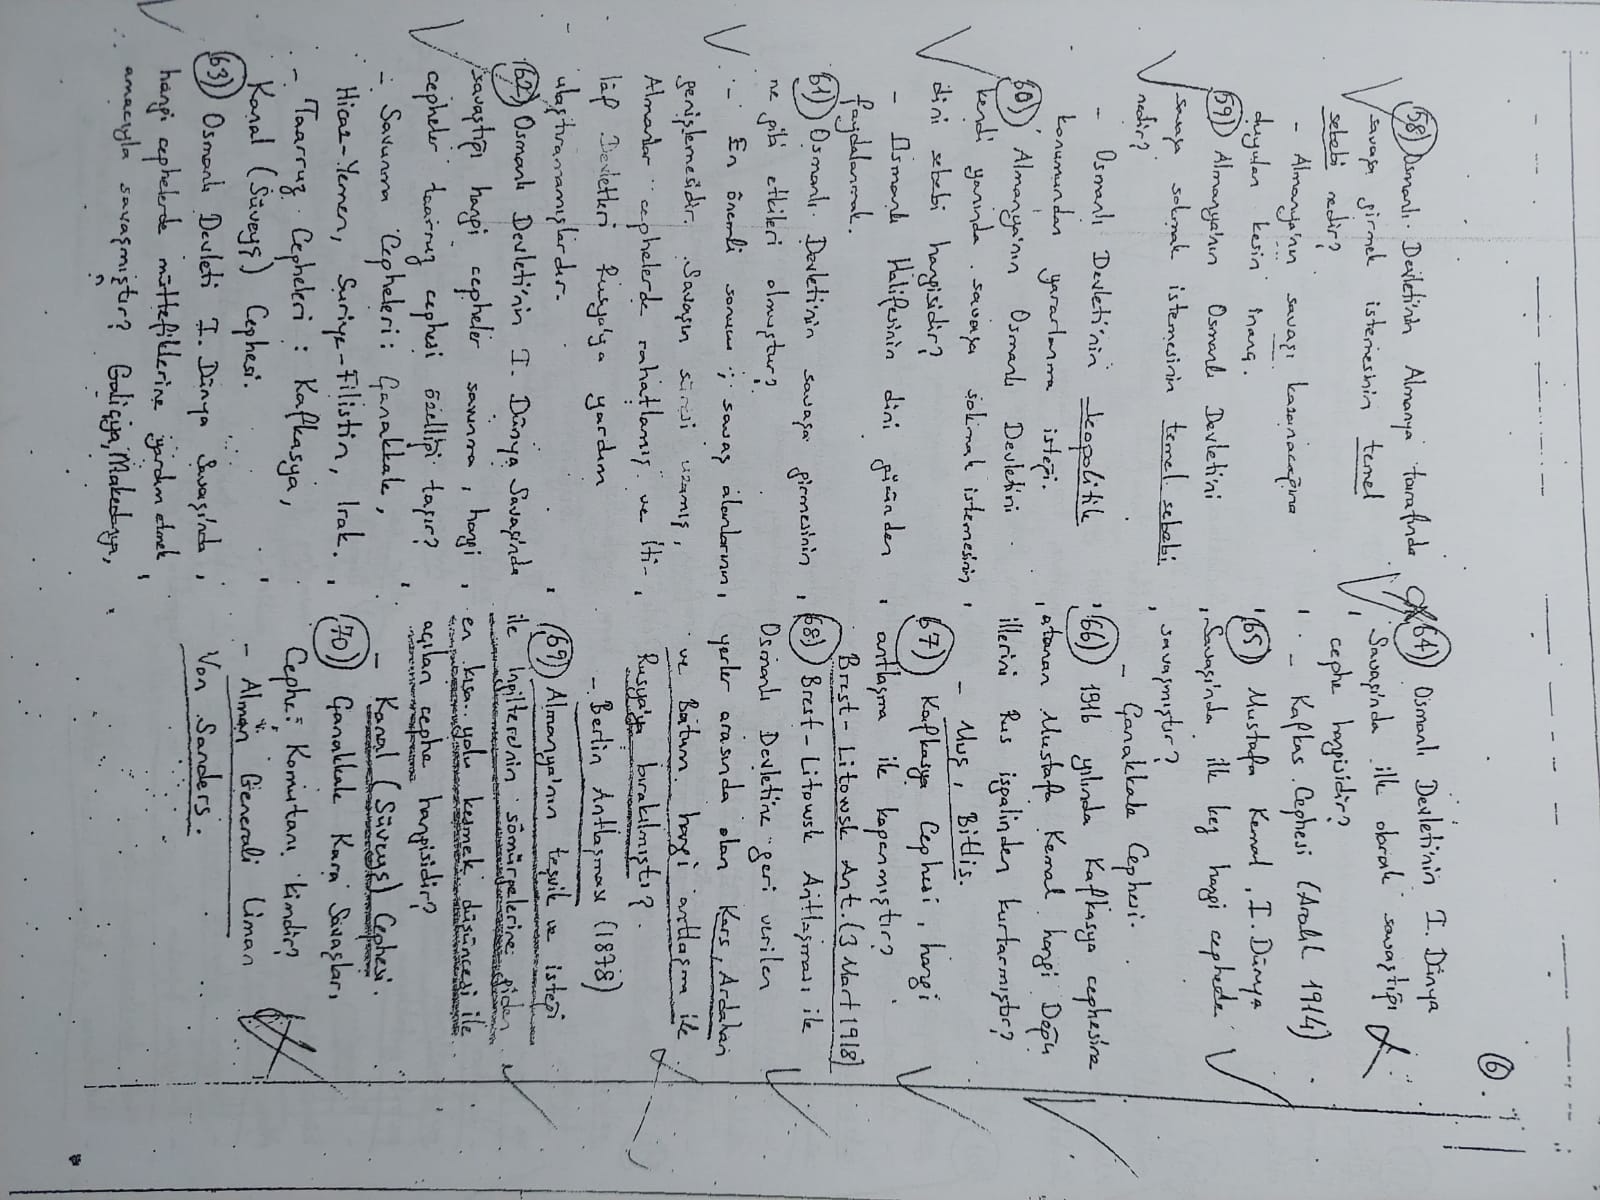 6.
58) Osmanlı Devleti'nin Almanya tarafında
savaşa girmek istemesinin temel
sebebi nedir?
- Almanya'nın savaşı kazanacağına
duyulan kesin inanç.
59) Almanya'nın Osmanlı Devleti'ni
savaşa sokmak istemesinin temel sebebi
nedir?
- Osmanlı Devleti'nin Jeopolitik
konumundan yararlanma isteği.
60) Almanya'nın Osmanlı Devletini
kendi yanında savaşa sokmak istemesinin
dini sebebi hangisidir?
- Osmanlı Halifesinin dini gücünden
faydalanmak.
61) Osmanlı Devleti'nin savaşa girmesinin
ne gibi etkileri olmuştur?
- En önemli sonucu ; savaş alanlarının
genişlemesidir. Savaşın süresi uzamış,
Almanlar cephelerde rahatlamış ve İti-
lâf Devletleri Rusya'ya yardım
ulaştıramamışlardır.
62) Osmanlı Devleti'nin I. Dünya Savaşı'nda
savaştığı hangi cepheler savunma, hangi
cepheler taarruz cephesi özelliği taşır?
- Savunma Cepheleri : Çanakkale,
Hicaz-Yemen, Suriye-Filistin, Irak.
- Taarruz Cepheleri : Kafkasya,
Kanal (Süveyş) Cephesi.
63) Osmanlı Devleti I. Dünya Savaşı'nda
hangi cephelerde müttefiklerine yardım etmek
amacıyla savaşmıştır? Galiçya, Makedonya,
64) Osmanlı Devleti'nin I. Dünya
Savaşı'nda ilk olarak savaştığı
cephe hangisidir?
- Kafkas Cephesi (Aralık 1914)
65) Mustafa Kemal, I. Dünya
Savaşı'nda ilk kez hangi cephede
savaşmıştır?
- Çanakkale Cephesi.
66) 1916 yılında Kafkasya cephesine
atanan Mustafa Kemal hangi Doğu
illerini Rus işgalinden kurtarmıştır?
- Muş, Bitlis.
67) Kafkasya Cephesi, hangi
antlaşma ile kapanmıştır?
Brest-Litowsk Ant. (3 Mart 1918)
68) Brest-Litowsk Antlaşması ile
Osmanlı Devleti'ne geri verilen
yerler arasında olan Kars, Ardahan
ve Batum hangi antlaşma ile
Rusya'ya bırakılmıştı?
- Berlin Antlaşması (1878)
69) Almanya'nın teşvik ve isteği
ile İngiltere'nin sömürgelerine giden
en kısa yolu kesmek düşüncesi ile
açılan cephe hangisidir?
- Kanal (Süveyş) Cephesi.
70) Çanakkale Kara Savaşları
Cephe Komutanı kimdir?
- Alman Generali Liman
Von Sanders.